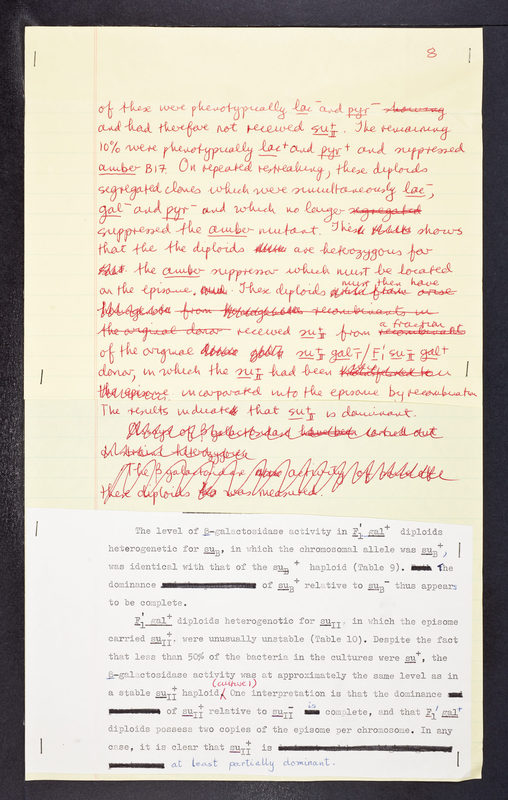 8
of these were phenotypically lac⁻ and pyr⁻ showing
and had therefore not received su⁺II. The remaining
10% were phenotypically lac⁺ and pyr⁺ and suppressed
amber B17. On repeated restreaking, these diploids
segregated clones which were simultaneously lac⁻,
gal⁻ and pyr⁻ and which no longer segregated
suppressed the amber mutant. This shows
that the the diploids are heterozygous for
the amber suppressor which must be located
on the episome, and. These diploids must then have
from recombinants in
the original donor received su⁺II from a fraction recombinants
of the original su⁻II gal⁻/F' su⁻II gal⁺
donor, in which the su⁺II had been
the episome incorporated into the episome by recombination
The results indicate that su⁺II is dominant.
of β galactosidase have been carried out

The β galactosidase activity of
these diploids was measured.
The level of β-galactosidase activity in F'1 gal⁺ diploids
heterogenetic for suB, in which the chromosomal allele was suB⁺,
was identical with that of the suB⁺ haploid (Table 9). The
dominance of suB⁺ relative to suB⁻ thus appears
to be complete.
F'1 gal⁺ diploids heterogenetic for suII, in which the episome
carried su⁺II, were unusually unstable (Table 10). Despite the fact
that less than 50% of the bacteria in the cultures were su⁺, the
β-galactosidase activity was at approximately the same level as in
a stable su⁺II haploid (culture 1). One interpretation is that the dominance
of su⁺II relative to su⁻II is complete, and that F'1 gal⁺
diploids possess two copies of the episome per chromosome. In any
case, it is clear that su⁺II is
at least partially dominant.